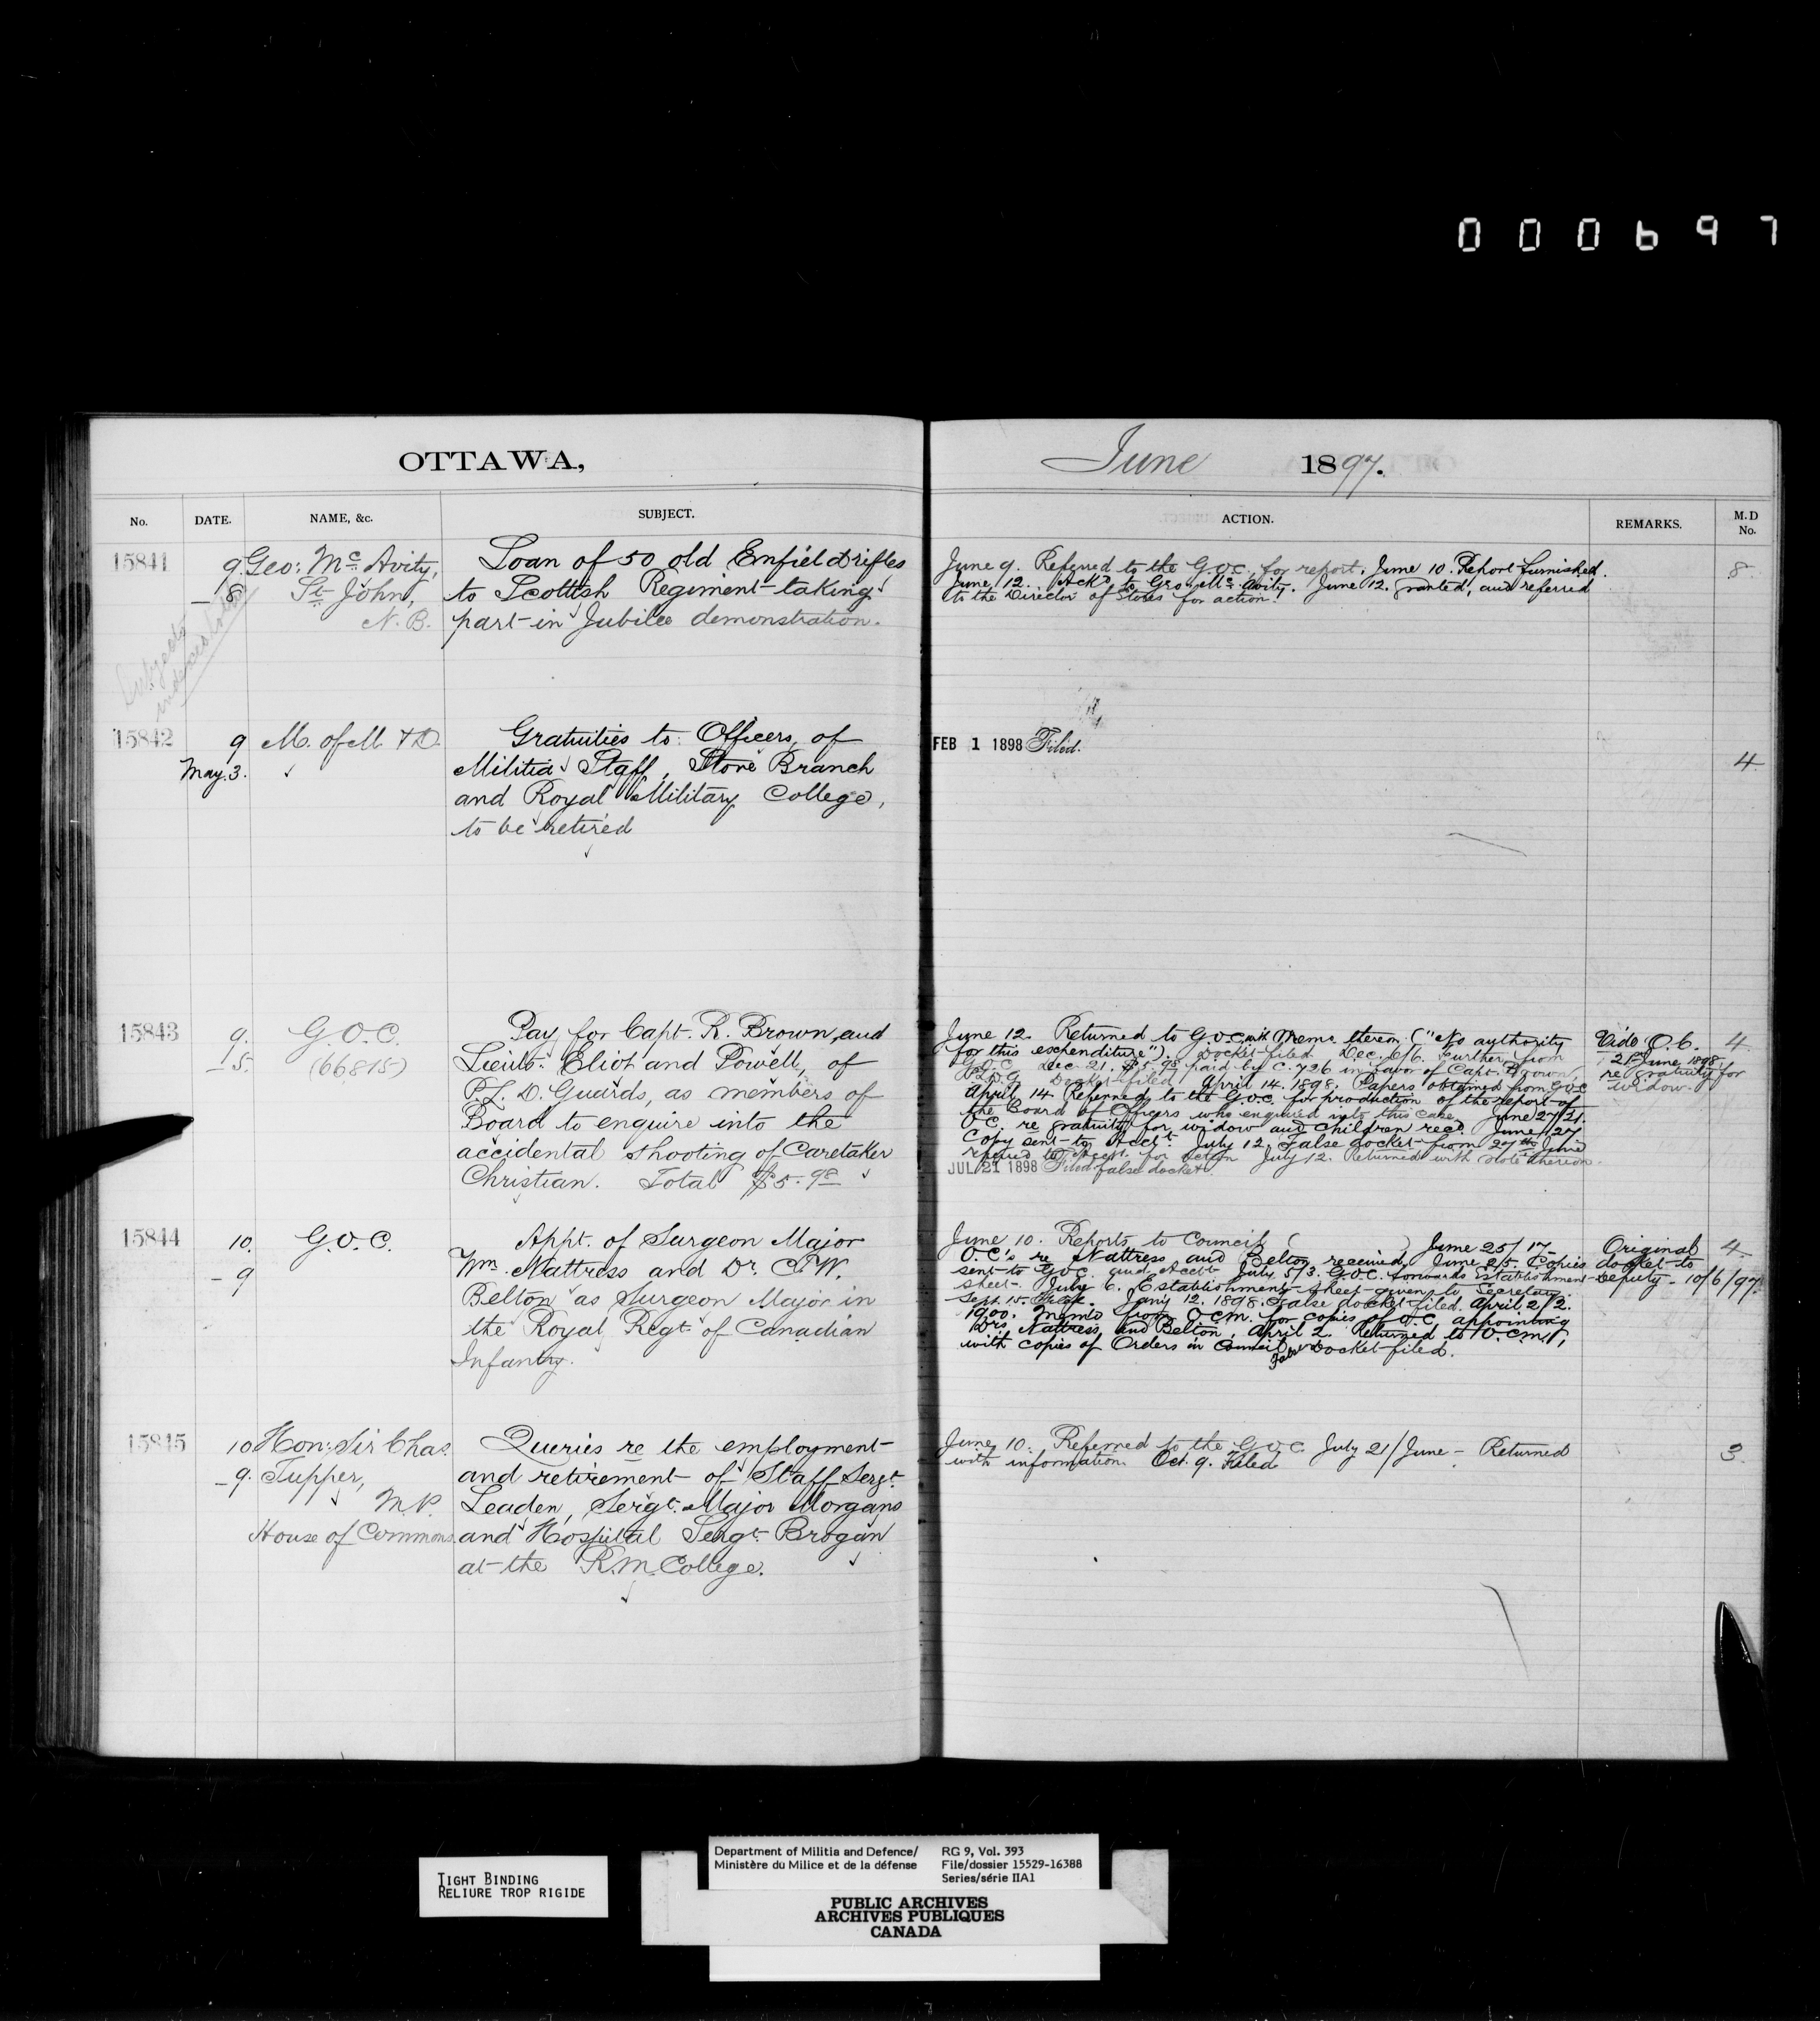 000697
OTTAWA,
June 1897.
No. DATE. NAME, &c. SUBJECT. ACTION. REMARKS. M.D No.
15841
9
– 8
Geo: McAvity,
St John,
N. B.
Loan of 50 old Enfield rifles
to Scottish Regiment taking
part in Jubilee demonstration.
June 9. Referred to the G.O.C. for report. June 10. Report furnished.
June 12. Ackd to Geo. McAvity. June 12. granted, and referred
to the Director of Stores for action.
8
Subjects
indexed to
15842
9
May. 3.
M. of M. & D.
Gratuities to Officers, of
Militia Staff, Store Branch
and Royal Military College,
to be retired
FEB 1 1898 Filed.
4
15843
9.
– 5.
G.O.C.
(66815)
Pay for Capt. R. Brown, and
Lieuts. Eliot and Powell, of
P.L. D. Guards, as members of
Board to enquire into the
accidental shooting of Caretaker
Christian. Total $5.98
June 12. Returned to G.O.C. with Memo thereon ("No authority
for this expenditure"). Docket filed. Dec. 6/6. Further from
G.O.C. Dec. 21. $5.98 paid by C. 726 in favor of Capt. Brown,
P.L.D.G. Docket filed. April 14. 1898. Papers obtained from G.O.C
April 14 Referred to the G.O.C. for production of the report of
the Board of Officers who enquired into this case. June 27/21.
O.C. re gratuity for widow and children recd. June 27
Copy sent to Acct. July 12. False docket from 27th June
referred to Acct. for action July 12. Returned with note thereon.
JUL 21 1898 Filed false docket
Vide O.C.
21 June 1898,
re gratuity for
widow.
4
15844
10.
– 9
G.O.C.
Appt. of Surgeon Major
Wm. Nattress and Dr. C.W.
Belton as Surgeon Major in
the Royal Regt. of Canadian
Infantry.
June 10. Reports to Council ( ) June 25/17
O.C's re Nattress and Belton received. June 25. Copies
sent to G.O.C. and Acct. July 5/3. G.O.C. forwards Establishment
sheet. July 6. Establishment sheet given to Secretary.
Sept. 15. Filed. Jany 12. 1898. False docket filed. April 2/2.
1900. Memo from O.C.M. for copies of O.C. appointing
Drs Nattress and Belton. April 2. Returned to O.C.M.,
with copies of Orders in Council. False Docket filed.
Original
docket to
Deputy – 10/6/97.
4
15845
10
– 9.
Hon: Sir Chas.
Tupper,
M.P.
House of Commons.
Queries re the employment
and retirement of Staff Sergt.
Leaden, Sergt. Major Morgans
and Hospital Sergt. Brogan
at the R.M. College.
June 10. Referred to the G.O.C. July 21/June – Returned
with information. Oct. 9. Filed
3
TIGHT BINDING
RELIURE TROP RIGIDE
Department of Militia and Defence/
Ministère du Milice et de la défense
RG 9, Vol. 393
File/dossier 15529-16388
Series/série IIA1
PUBLIC ARCHIVES
ARCHIVES PUBLIQUES
CANADA